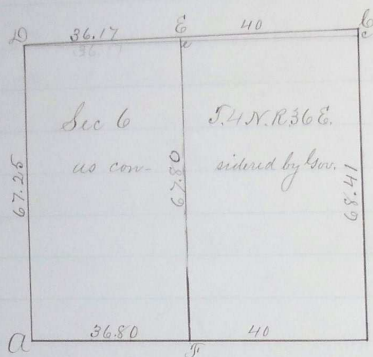 D 36.17 E 40 C
Sec 6 T.4N.R36E.
as con- sidered by Gov.
67.25
67.80
68.41
A 36.80 F 40